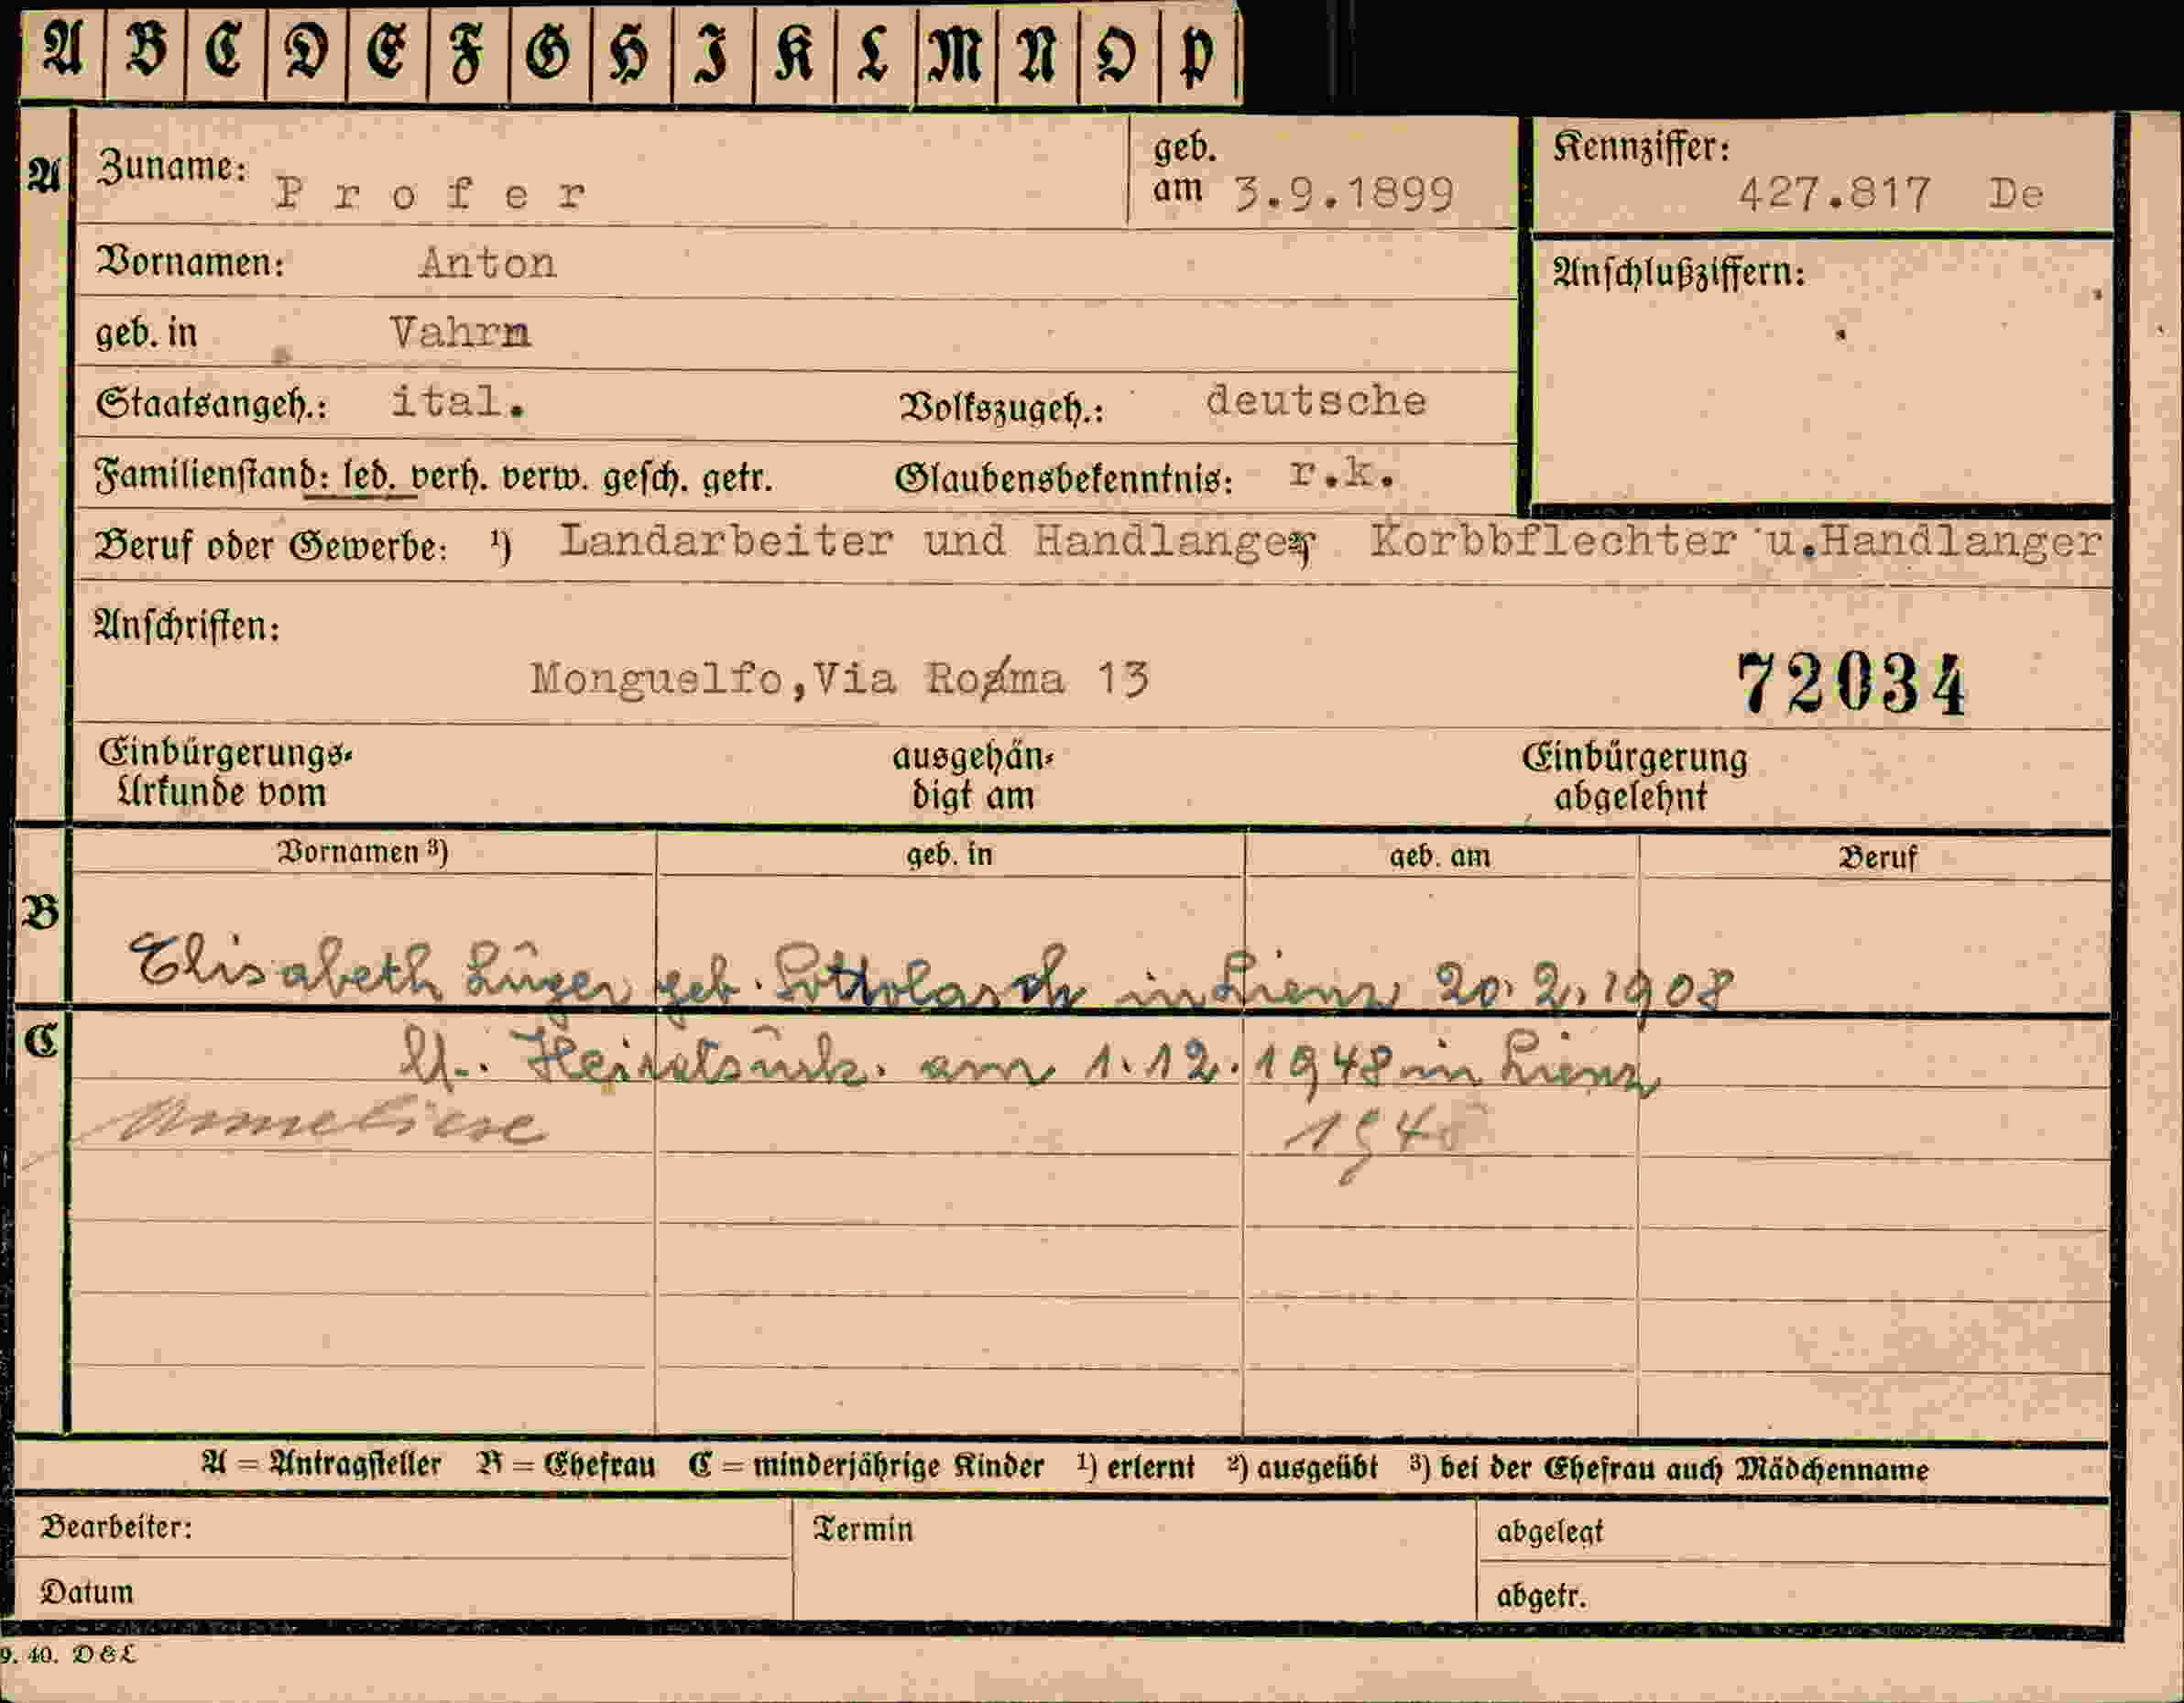 A B C D E F G H I K L M N O P
A Zuname: Profer geb. am 3.9.1899 Kennziffer: 427.817 De
Vornamen: Anton Anschlußziffern:
geb. in Vahrn
Staatsangeh.: ital. Volkszugeh.: deutsche
Familienstand: led. verh. verw. gesch. getr. Glaubensbekenntnis: r.k.
Beruf oder Gewerbe: ¹) Landarbeiter und Handlanger Korbbflechter u.Handlanger
Anschriften:
Monguelfo,Via Roma 13 72034
Einbürgerungs- ausgehän- Einbürgerung
Urkunde vom digt am abgelehnt
Vornamen ³) geb. in geb. am Beruf
B
Elisabeth geb. in Lienz 20.2.1908
C
Heiratsurk. am 1.12.1948 in Lienz
Anneliese
A = Antragsteller B = Ehefrau C = minderjährige Kinder ¹) erlernt ²) ausgeübt ³) bei der Ehefrau auch Mädchenname
Bearbeiter: Termin abgelegt
Datum abgetr.
9. 40. D&L